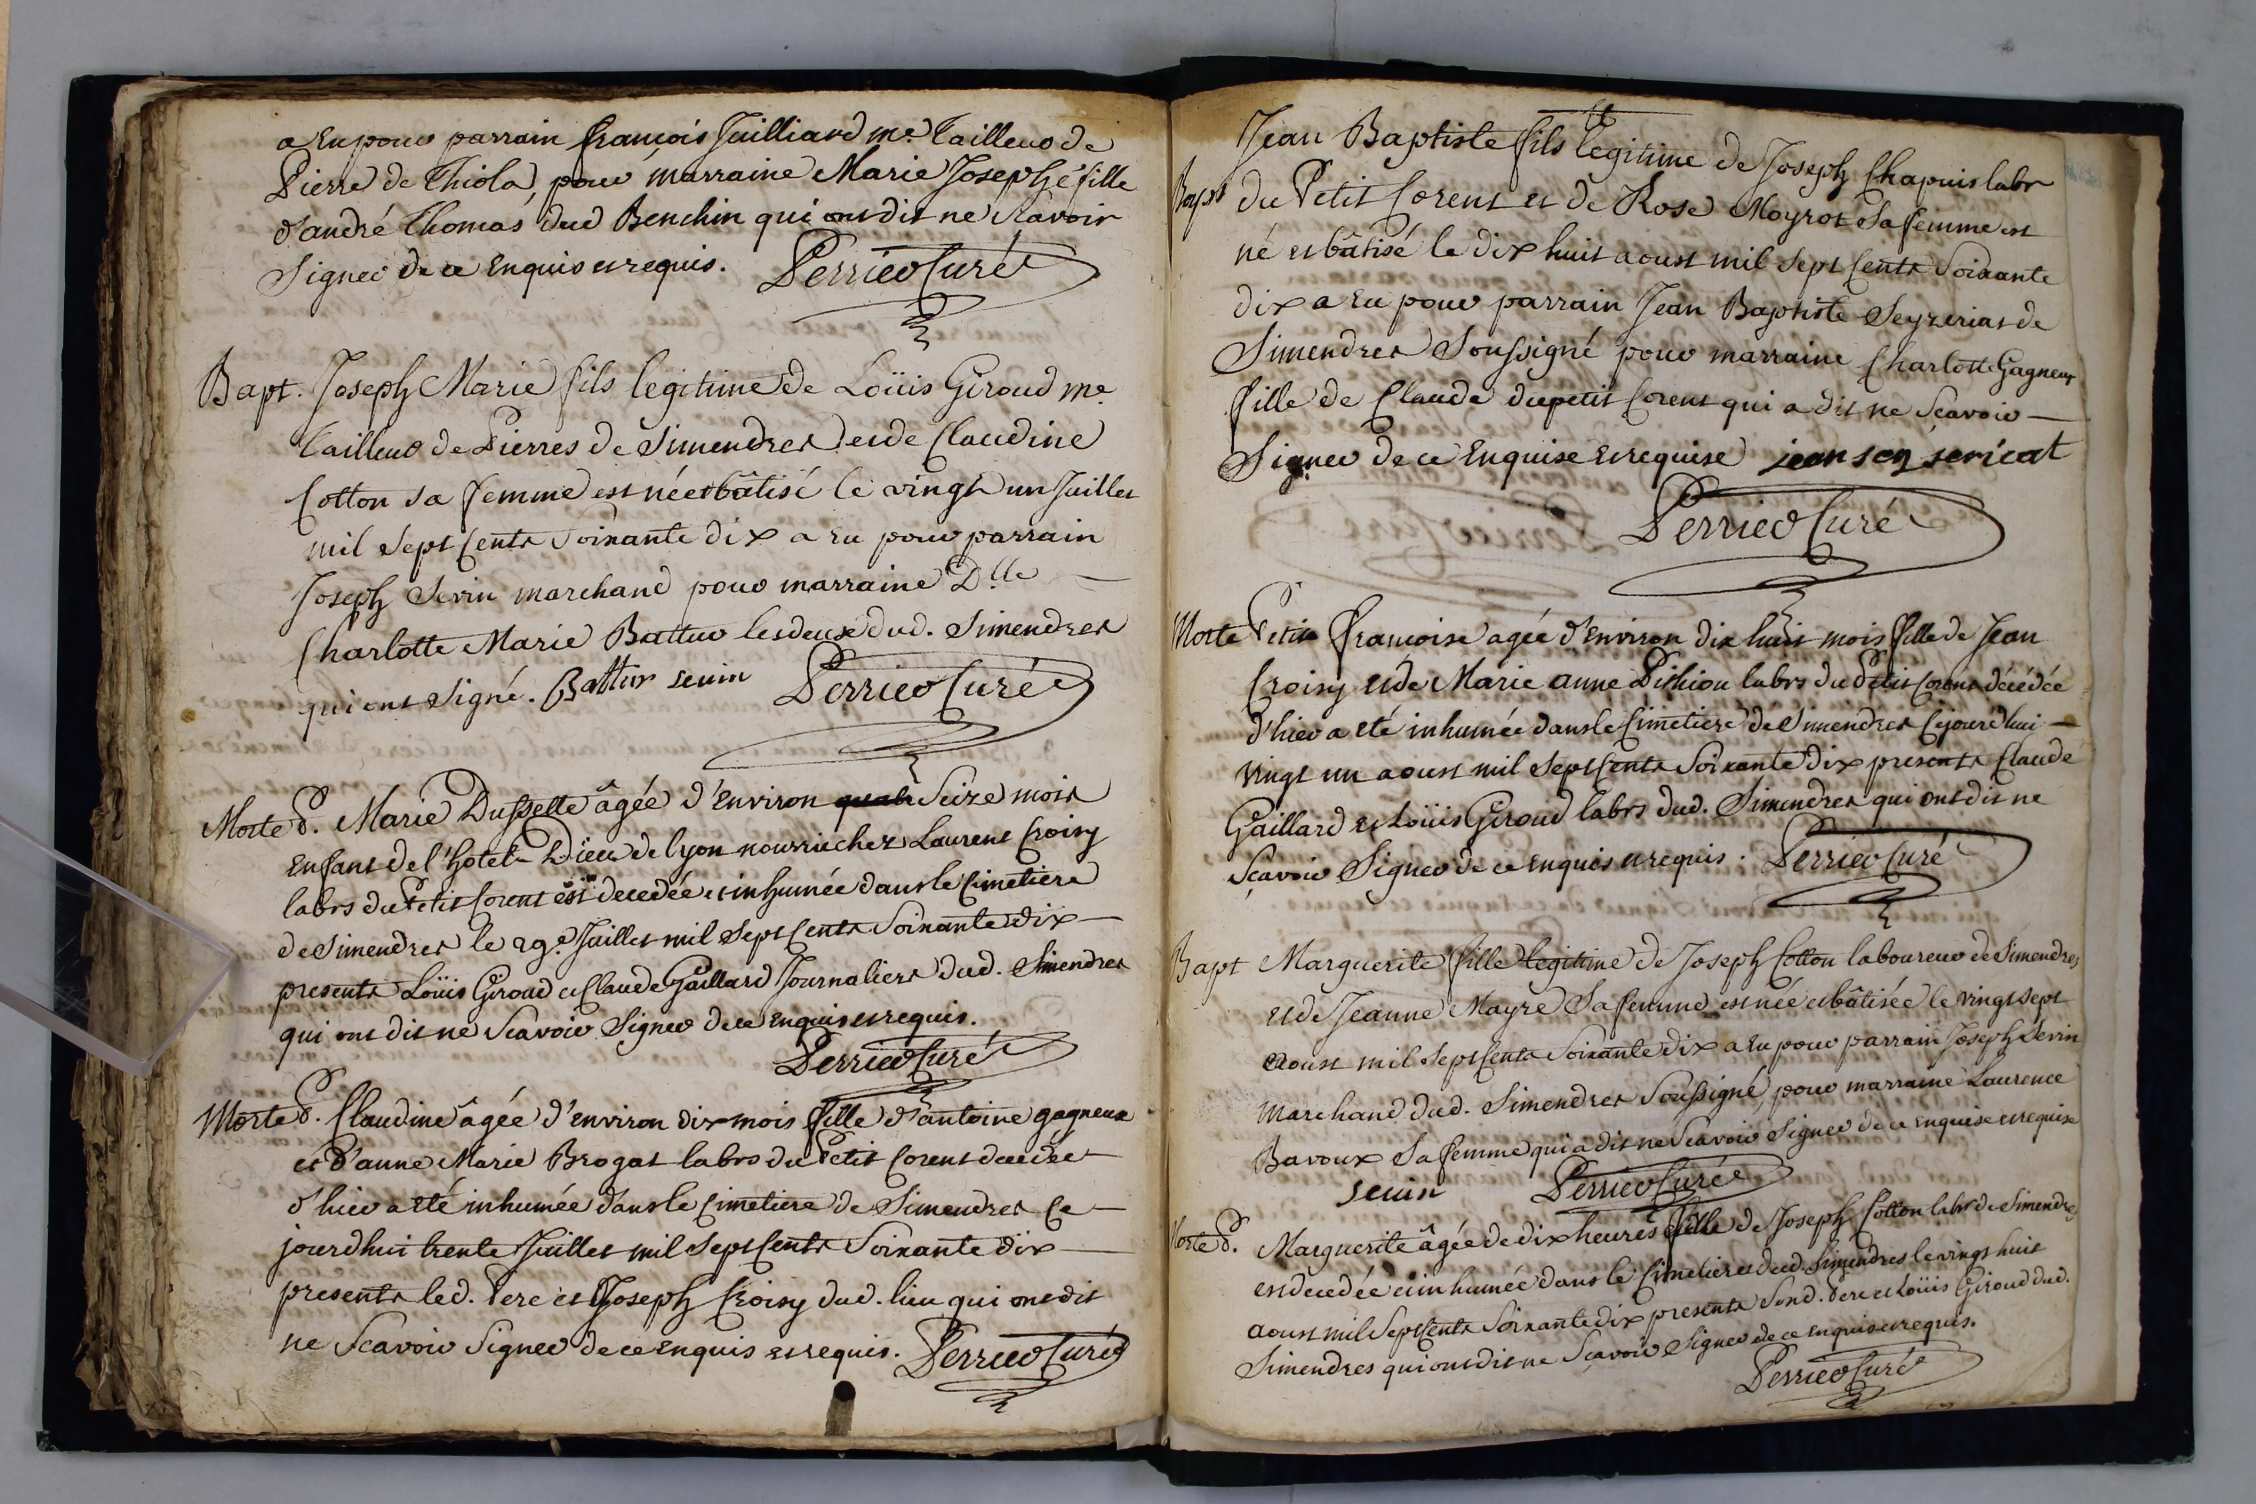 a eu pour parrain françois Juilliard me. tailleur de
Pierre de Thiola, pour marraine Marie Josephe fille
d'andré Thomas dud Benchin qui ont dit ne scavoir
Signer de ce enquis et requis. Perrier Curé
Bapt. Joseph Marie fils legitime de Loüis Giroud me.
tailleur de Pierres de Simendres et de Claudine
Cotton sa femme est né et bâtisé le vingt un Juillet
mil sept cents soixante dix a eu pour parrain
Joseph Sevin marchand pour marraine Dlle
Charlotte Marie Battur les deux dud. Simendres
qui ont signé. Battur sevin Perrier Curé
Morte P. Marie Dussette âgée d'environ seize mois
enfant de l'hôtel-Dieu de lyon nourrie chez Laurent Croisy
labrs du Petit Corent est decedée et inhumée dans le Cimetiere
de Simendres le 29e. Juillet mil sept cents soixante dix
presents Loüis Giroud et Claude Gaillard Journaliers dud. Simendres
qui ont dit ne scavoir signer de ce enquis et requis.
Perrier Curé
Morte P. Claudine âgée d'environ dix mois fille d'antoine gagneux
et d'anne Marie Brogat labrs du Petit Corent decedée
d'hier a eté inhumée dans le Cimetiere de Simendres ce
jourdhui trente Juillet mil sept cents soixante dix
presents led. Pere et Joseph Croisy dud. lieu qui ont dit
ne scavoir signer de ce enquis et requis. Perrier Curé
Jean Baptiste fils legitime de Joseph Chapuis labr
Bapt du Petit Corent et de Rose Moyrot sa femme est
né et bâtisé le dix huit aoust mil sept cents soixante
dix a eu pour parrain Jean Baptiste Seyzeriat de
Simendres soussigné pour marraine Charlotte Gagneux
fille de Claude du petit Corent qui a dit ne scavoir
Signer de ce enquise et requise
Perrier Curé
Morte Petite françoise agée d'environ dix huit mois fille de Jean
Croisy et de Marie anne Pithiou labrs du Petit Corent décédée
d'hier a eté inhumée dans le Cimetiere de Simendres cejourdhui
vingt un aoust mil sept cents soixante dix presents Claude
Gaillard et Loüis Giroud labrs dud. Simendres qui ont dit ne
scavoir signer de ce enquis et requis. Perrier Curé
Bapt Marguerite fille legitime de Joseph Cotton laboureur de Simendres
et de Jeanne Mayre sa femme est née et bâtisée le vingt sept
aoust mil sept cents soixante dix a eu pour parrain Joseph Sevin
marchand dud. Simendres soussigné, pour marraine Laurence
Bavoux sa femme qui a dit ne scavoir signer de ce enquise et requise
sevin Perrier Curé
Morte P. Marguerite âgée de dix heures fille de Joseph Cotton labr de Simendres
est decedée et inhumée dans le Cimetiere dud. Simendres le vingt huit
aoust mil sept cents soixante dix presents sond. Pere et Loüis Giroud dud.
Simendres qui ont dit ne scavoir signer de ce enquis et requis.
Perrier Curé